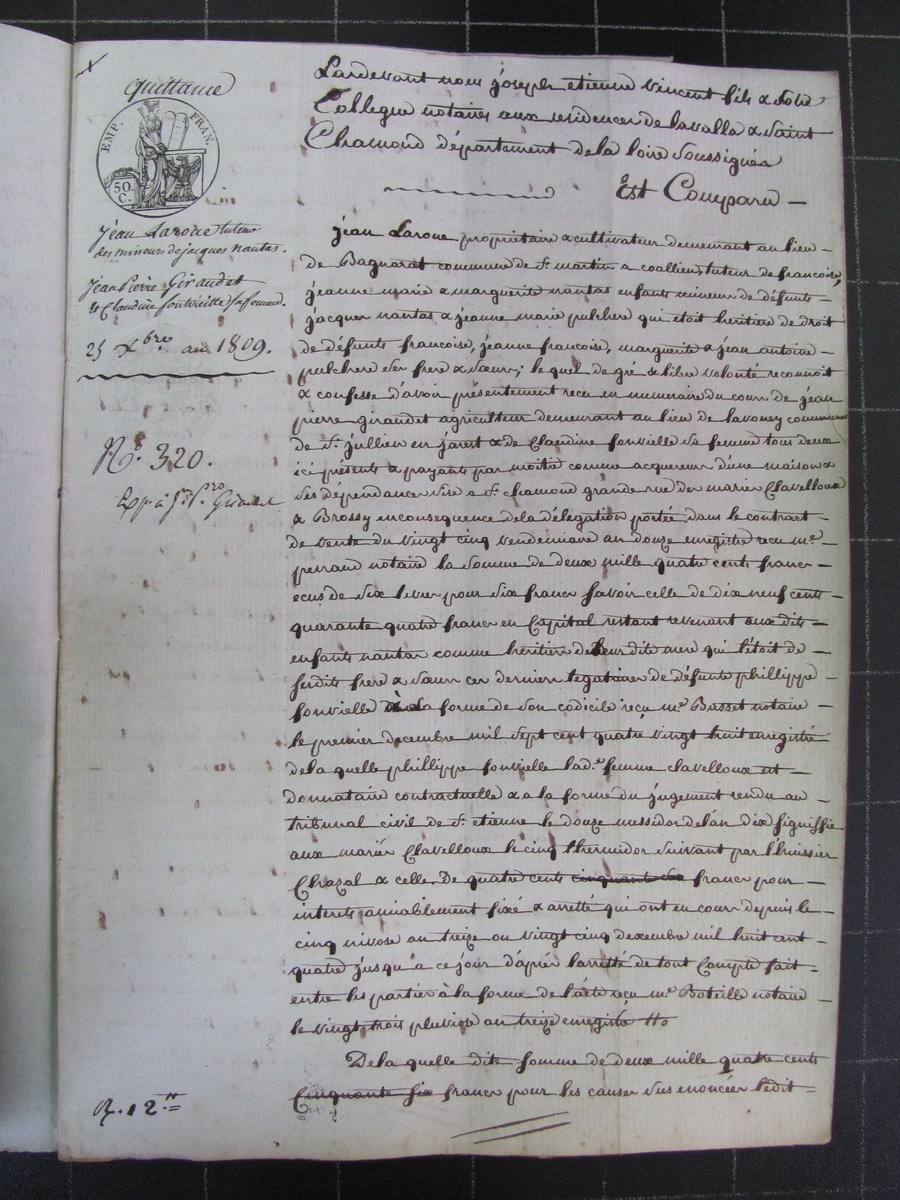 Quittance
EMP. FRAN.
50. C.
Jean Laroue tuteur
des mineurs de jacques nantas.
Jean Pierre Giraudet
& Claudine fontvieille sa femme.
25 Xbre an 1809.
N°. 320.
Exp. à Jn. Prre Giraudet
R. 12.
Pardevant nous joseph etienne vincent fils & son
Collegue notaires aux residences de lavalla & Saint
Chamond département de la loire Soussignés
Est Comparu —
jean Laroue propriétaire & cultivateur demeurant au lieu —
de Bagnarat commune de St. martin a coallieu, tuteur de francoise,
jeanne marie & marguerite nantas enfants mineurs de défunts —
jacques nantas & jeanne marie pulchere qui etoit heritiere de droit
de défunts francoise, jeanne francoise, marguerite & jean antoine —
pulchere ses frere & sœurs; le quel de gré & libre volonté reconnoit
& confesse d'avoir présentement recu en numeraire du cours de jean
pierre giraudet agriculteur demeurant au lieu de commune
de St. jullien en jarret & de Claudine fonvielle sa femme tous deux
ici présents & payants par moitié comme acquereurs d'une maison &
ses dépendances sise a St. chamond grande rue des mariés Clavelloux
& Brossy en consequence de la délégation portée dans le contrat —
de vente du vingt cinq vendemiaire an douze enregistré recu me. —
perraud notaire la somme de deux mille quatre cents francs —
ecus de six livres pour six francs savoir celle de dix neuf cents
quarante quatre francs en Capital restant revenant aux dits —
enfants nantas comme héritiers de leur dite mere qui l'étoit de —
sesdits frere & sœurs ces derniers legataires de défunte phillippe
fonvielle à la forme de son codicile recu me. Basset notaire —
le premier decembre mil sept cent quatre vingt huit enregistré
de la quelle phillippe fonvielle lad.e femme clavelloux est —
donnataire contractuelle & a la forme du jugement rendu au —
tribunal civil de St. etienne le douze messidor de l'an dix signiffié
aux mariés Clavelloux le cinq thermidor suivant par l'huissier
Chazal & celle De quatre cents cinquante six francs pour —
interets amiablement fixé & arretté qui ont eu cours depuis le —
cinq nivose an treize ou vingt cinq decembre mil huit cent —
quatre jusqu'à ce jour d'après l'arretté de tout Compte fait —
entre les parties à la forme de l'acte recu me. Boteille notaire —
le vingt trois pluviose an treize enregistré
De la quelle dite somme de deux mille quatre cents
Cinquante six francs pour les causes sus enoncées ledit —